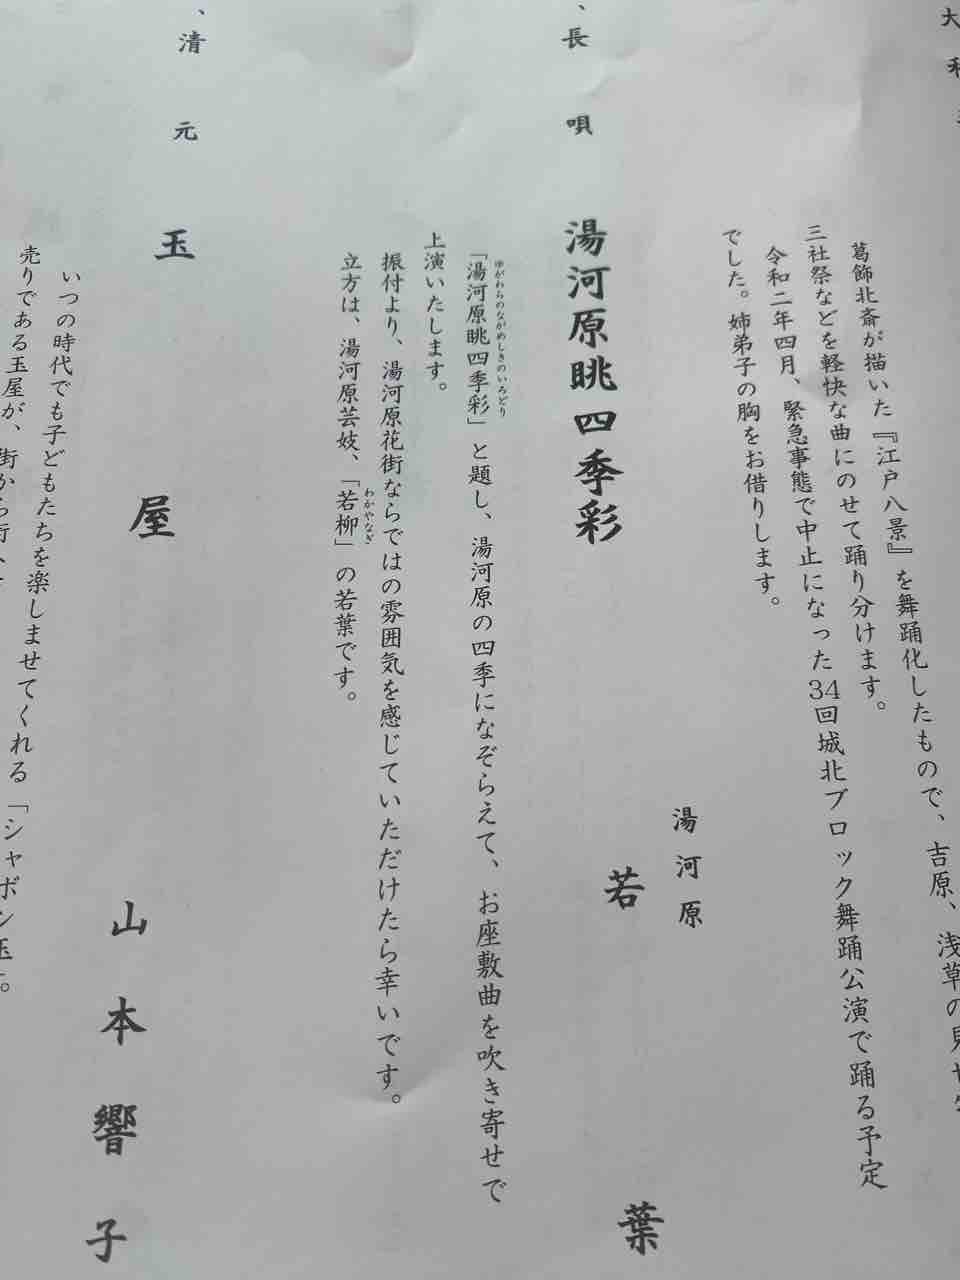 大
葛飾北斎が描いた『江戸八景』を舞踊化したもので、吉原、浅草の
三社祭などを軽快な曲にのせて踊り分けます。
令和二年四月、緊急事態で中止になった34回城北ブロック舞踊公演で踊る予定
でした。姉弟子の胸をお借りします。
、長唄
湯河原眺四季彩
湯河原
若葉
ゆがわらのながめしきのいろどり
「湯河原眺四季彩」と題し、湯河原の四季になぞらえて、お座敷曲を吹き寄せで
上演いたします。
振付より、湯河原花街ならではの雰囲気を感じていただけたら幸いです。
わかやなぎ
立方は、湯河原芸妓、「若柳」の若葉です。
、清元
玉屋
山本響子
いつの時代でも子どもたちを楽しませてくれる「シャボン玉」。
売りである玉屋が、街から街へ